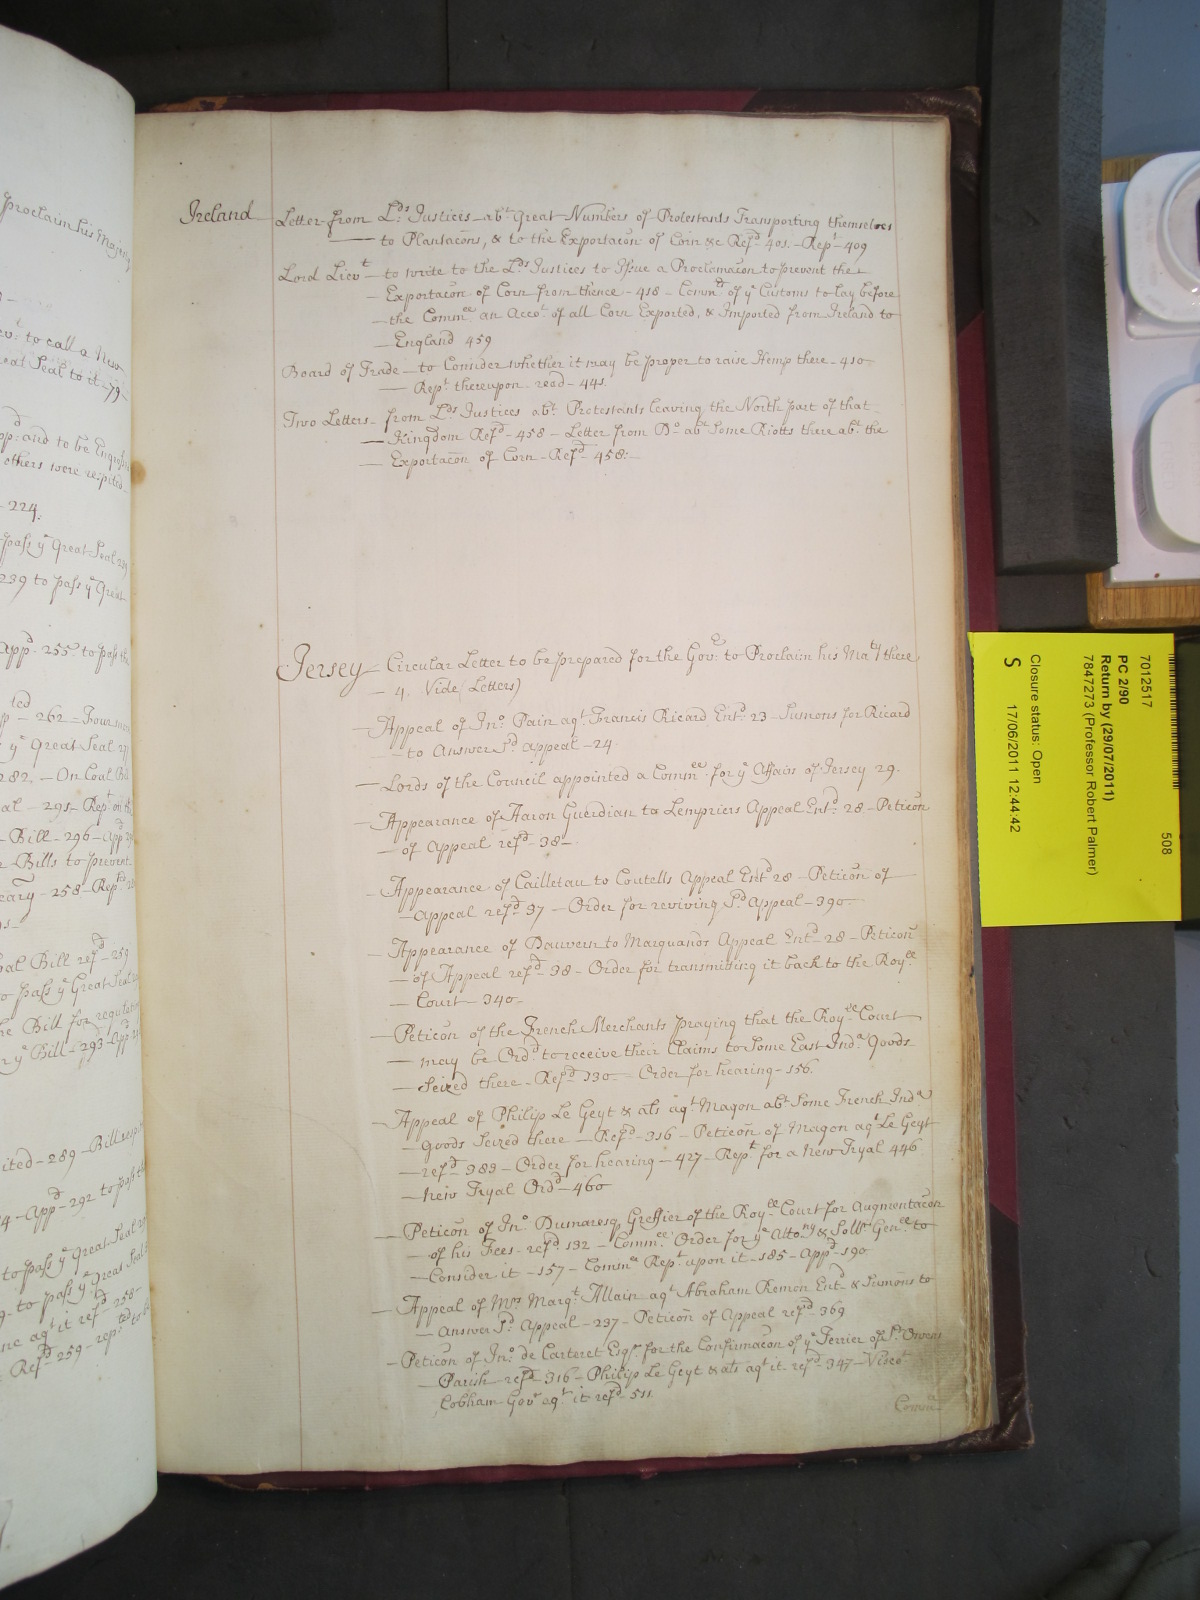 proclaim his Majesty
to call a New
Great Seal to it - 79 -
and to be Engrossed
others were respited
- 224.
pass yᵉ Great Seal
239 to pass yᵉ Great
Appᵈ. 255. to pass the
262 - Four
yᵉ Great Seal
282. - On Coal Bill
- 295 - Repᵗ. on
Bill - 296 - Appᵈ
Bills to prevent
- 258 - Repᵗ
Coal Bill refᵈ - 259
to pass yᵉ Great Seal
the Bill for regulating
yᵉ Bill - 293 - Appᵈ
- 289 - Bill
- Appᵈ - 292 to pass the
to pass yᵉ Great Seal
to pass yᵉ Great Seal
agᵗ it refᵈ 258
Refᵈ 259 - repᵗᵉᵈ to be
Ireland Letter from Lᵈˢ. Justices abᵗ Great Numbers of Protestants Transporting themselves
to Plantacōns, & to the Exportacōn of Corn &c Refᵈ. 401. - Repᵗ. 409
Lord Lievᵗ to write to the Lᵈˢ. Justices to Issue a Proclamacōn to prevent the
Exportacōn of Corn from thence - 418 - Commʳˢ of yᵉ Customs to lay before
the Commᵉᵉ an Accoᵗ of all Corn Exported, & Imported from Ireland to
England 459
Board of Trade - to Consider whether it may be proper to raise Hemp there - 410
Repᵗ. thereupon read - 441.
Two Letters - from Lᵈˢ. Justices abᵗ. Protestants leaving the North part of that
Kingdom Refᵈ - 458 - Letter from Dᵒ. abᵗ Some Riotts there abᵗ. the
Exportacōn of Corn - Refᵈ. 458.
Jersey - Circular Letter to be prepared for the Govʳ. to Proclaim his Maᵗʸ there
- 4. Vide (Letters)
- Appeal of Jnᵒ. Pain agᵗ. Francis Ricard Entᵈ. 23 - Sumons for Ricard
to Answer Sᵈ appeal - 24.
- Lords of the Council appointed a Commᵉᵉ. for yᵉ Affairs of Jersey 29.
- Appearance of Aaron Guerdian to Lempriers Appeal Entᵈ. 28 - Peticōn
- of appeal refᵈ - 38 -
- Appearance of Cailletau to Coutells Appeal Entᵈ 28 - Peticōn of
- Appeal refᵈ 37 - Order for reviving Sᵈ. Appeal - 390
- Appearance of Dauvern to Marquands Appeal Entᵈ. 28 - Peticōn
- of Appeal refᵈ. 38 - Order for transmitting it back to the Royˡˡ
- Court - 340 -
- Peticōn of the French Merchants praying that the Royˡˡ Court
- may be Ordᵈ to receive their Claims to Some East Indᵃ Goods
- Seized there - Refᵈ 130 - Order for hearing - 156.
- Appeal of Philip Le Geyt & als agᵗ Magon abᵗ Some French Indᵃ
- Goods Seized there - Refᵈ - 316 - Peticōn of Magon agᵗ Le Geyt
- refᵈ 383 - Order for hearing - 427 - Repᵗ. for a New Tryal 446
- New Tryal Ordᵈ - 460
- Peticōn of Jnᵒ. Dumaresq Greffier of the Royˡˡ Court for Augmentacōn
- of his Fees - refᵈ. 132 - Commᵉᵉ. Order for yᵉ Attoʳⁿʸ & Sollʳ Genˡˡ. to
- Consider it - 157 - Commᵉᵉ Repᵗ upon it - 185 - Appᵈ - 190
- Appeal of Mʳˢ Margᵗ. Allain agᵗ Abraham Remon Entᵈ & Sumons to
- Answer Sᵈ. Appeal - 237 - Peticōn of Appeal refᵈ - 369
- Peticōn of Jnᵒ. de Carteret Esqʳ. for the Confirmacōn of yᵉ Terrier of Sᵗ. Owens
Parish refᵈ 316 - Philip Le Geyt & als agᵗ it refᵈ. 347 - Viscoᵗ
Cobham Govʳ agᵗ it refᵈ - 511.
7012517 508
PC 2/90
Return by (29/07/2011)
7847273 (Professor Robert Palmer)
Closure status: Open
S 17/06/2011 12:44:42